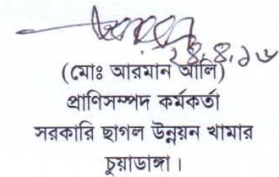 ২৪.৪.১৮
(মোঃ আরমান আলি)
প্রাণিসম্পদ কর্মকর্তা
সরকারি ছাগল উন্নয়ন খামার
চুয়াডাঙ্গা।